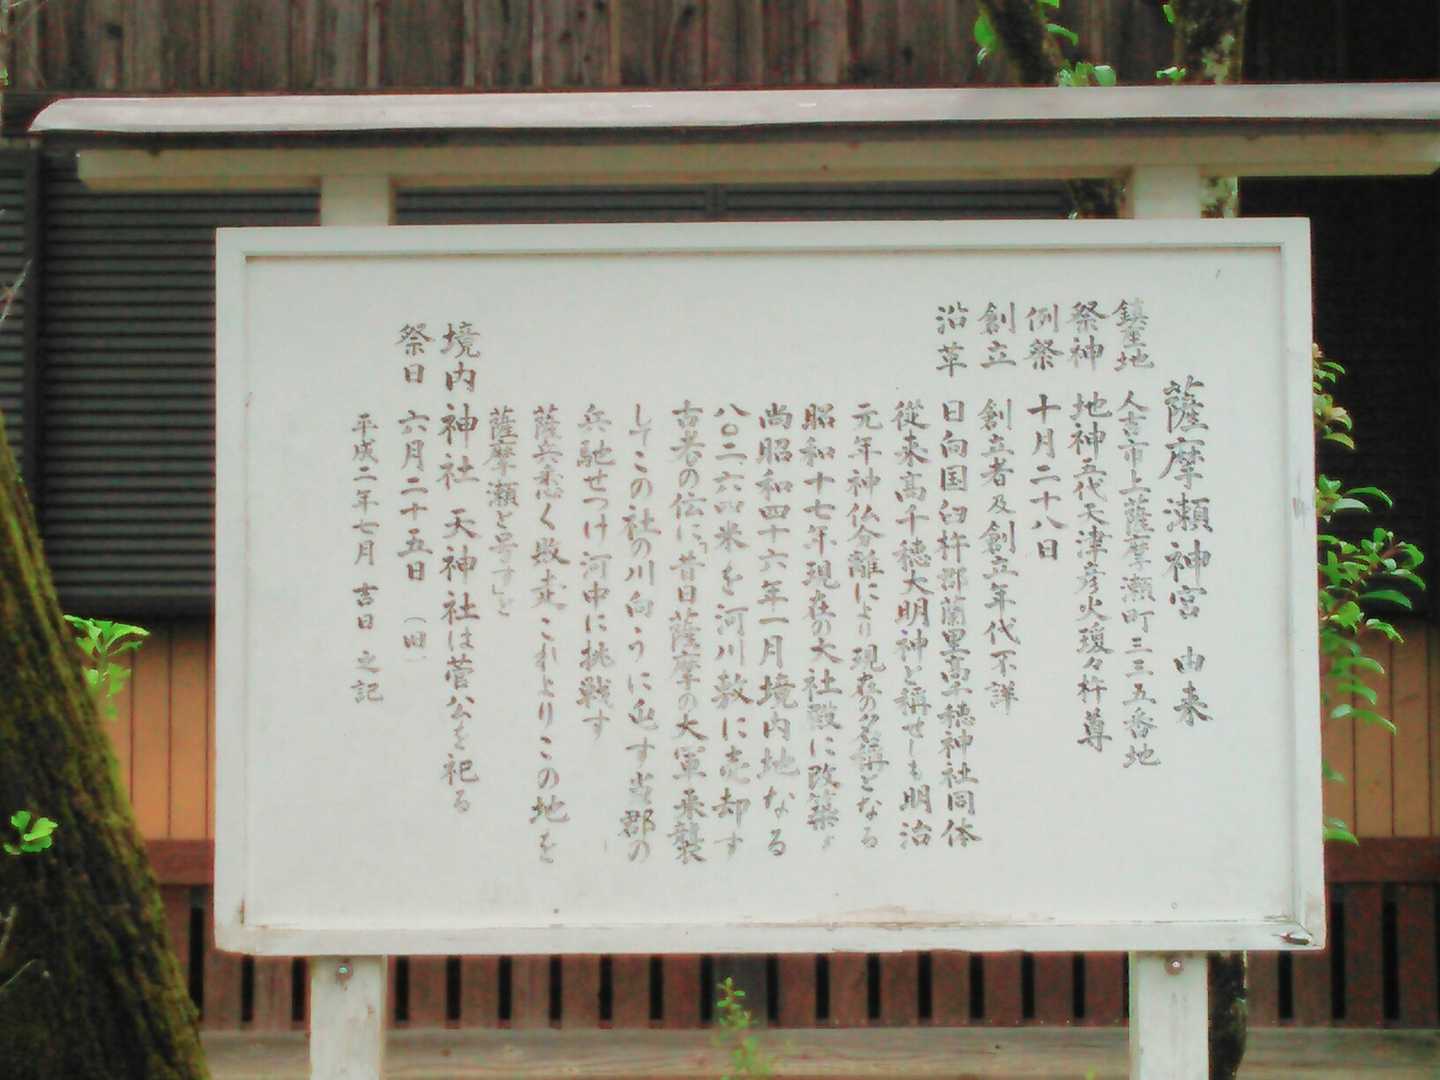 薩摩瀬神宮 由来
鎮座地 人吉市上薩摩瀬町三三五番地
祭神 地神五代天津彦火瓊々杵尊
例祭 十月二十八日
創立 創立者及創立年代不詳
沿革 日向国臼杵郡蘭里高千穂神社同体
従来高千穂大明神と称せしも明治
元年神仏分離により現在の名称となる
昭和十七年現在の大社殿に改築す
尚昭和四十六年一月境内地なる
八〇二、六四米を河川敷に売却す
古老の伝に「昔日薩摩の大軍来襲
してこの社の川向うに出す当郡の
兵馳せつけ河中に挑戦す
薩兵悉く敗走これよりこの地を
薩摩瀬と号す」と
境内神社 天神社は菅公を祀る
祭日 六月二十五日 (旧
平成二年七月 吉日 之記